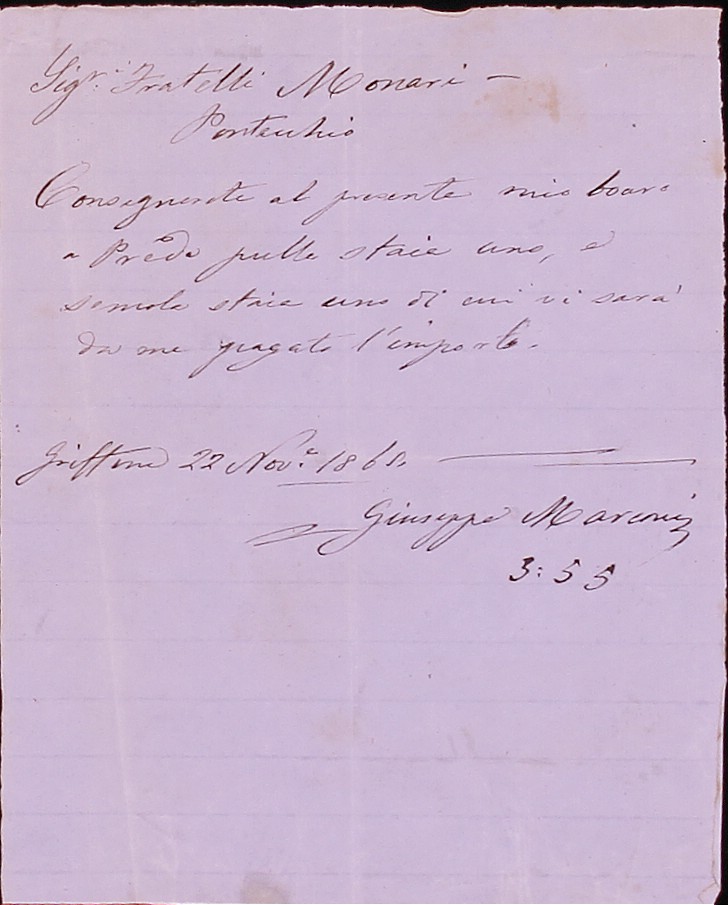 Sigri Fratelli Monari —
Pontecchio
Consegnerete al presente mio boaro
a Predo pulla staia uno, e
semola staia uno di cui vi sarà
da me pagato l'importo.
Griffone 22 Nove. 186
Giuseppe Marconi
3:55